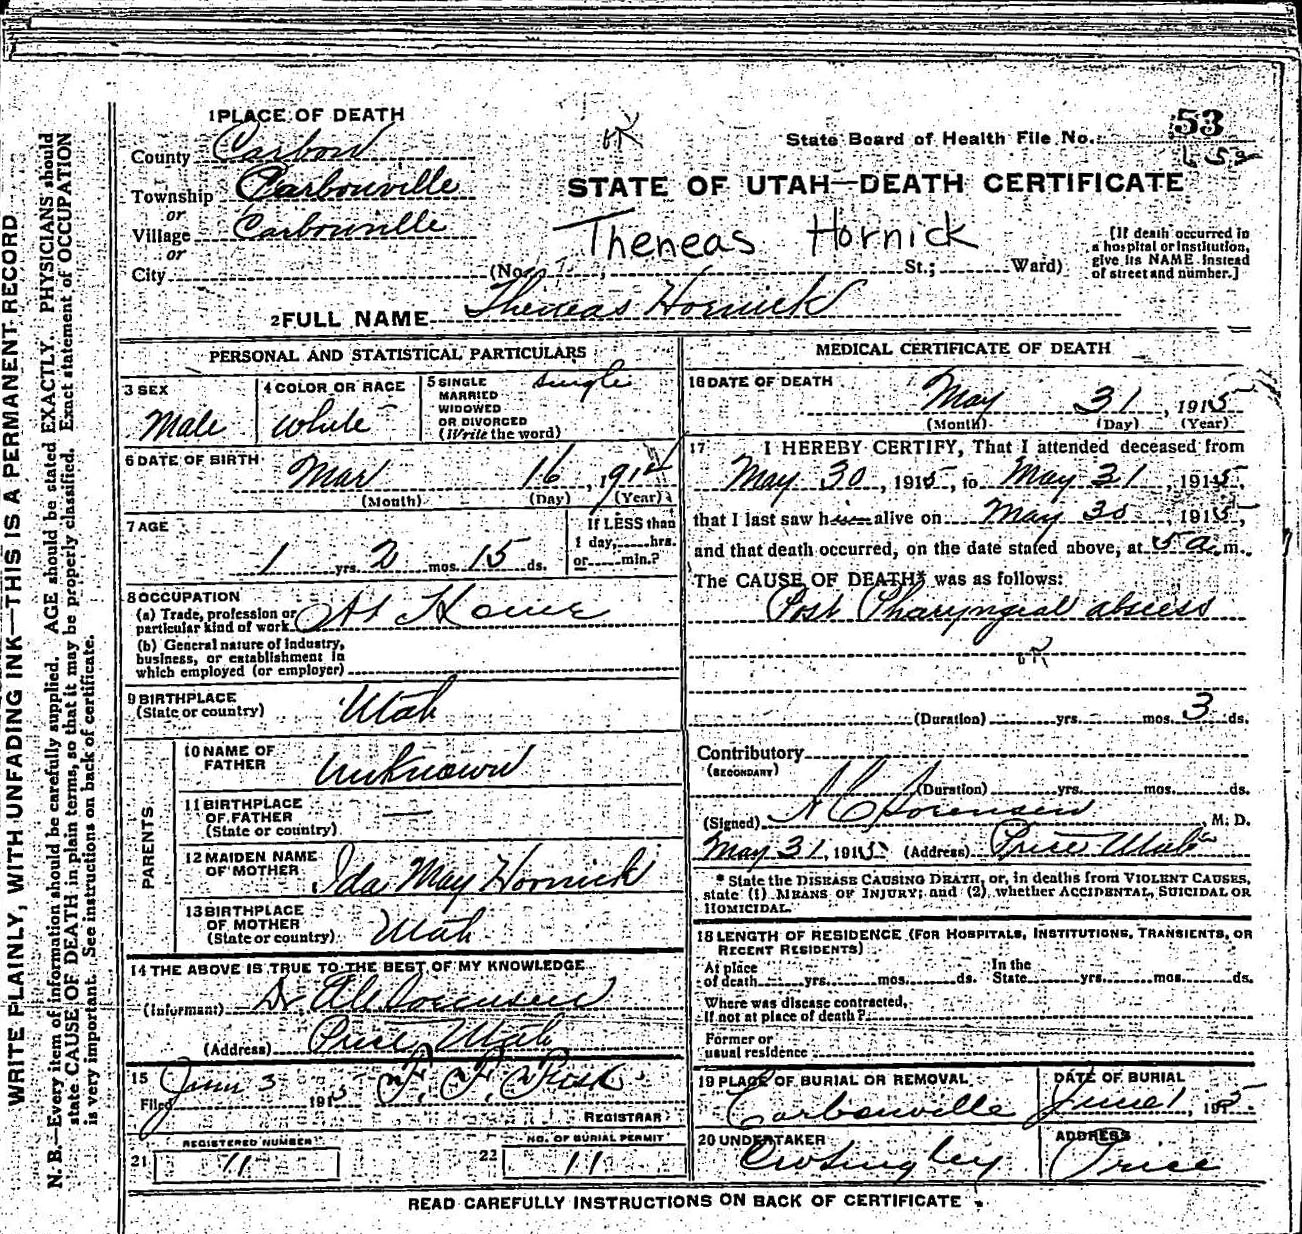 WRITE PLAINLY, WITH UNFADING INK—THIS IS A PERMANENT RECORD
N. B.—Every item of information should be carefully supplied. AGE should be stated EXACTLY. PHYSICIANS should
state CAUSE OF DEATH in plain terms, so that it may be properly classified. Exact statement of OCCUPATION
is very important. See instructions on back of certificate.
1 PLACE OF DEATH
County Carbon
Township Carbonville
or
Village Carbonville
or
City
OK
State Board of Health File No. 53
STATE OF UTAH—DEATH CERTIFICATE
Theneas Hornick
(No. , St.; Ward)
[If death occurred in
a hospital or institution,
give its NAME instead
of street and number.]
2 FULL NAME Theneas Hornick
PERSONAL AND STATISTICAL PARTICULARS
3 SEX
Male
4 COLOR OR RACE
White
5 SINGLE
MARRIED
WIDOWED
OR DIVORCED
(Write the word)
single
6 DATE OF BIRTH
Mar 16, 1914
(Month) (Day) (Year)
7 AGE
1 yrs. 2 mos. 15 ds.
If LESS than
1 day, hrs.
or min.?
8 OCCUPATION
(a) Trade, profession or
particular kind of work At Home
(b) General nature of industry,
business, or establishment in
which employed (or employer)
9 BIRTHPLACE
(State or country) Utah
PARENTS
10 NAME OF
FATHER Unknown
11 BIRTHPLACE
OF FATHER
(State or country) —
12 MAIDEN NAME
OF MOTHER Ida May Hornick
13 BIRTHPLACE
OF MOTHER
(State or country) Utah
14 THE ABOVE IS TRUE TO THE BEST OF MY KNOWLEDGE
(Informant) Dr. Sorensen
(Address) Price, Utah
15
Filed June 3 1915
REGISTRAR
REGISTERED NUMBER
21 11
NO. OF BURIAL PERMIT
22 11
MEDICAL CERTIFICATE OF DEATH
16 DATE OF DEATH
May 31, 1915
(Month) (Day) (Year)
17 I HEREBY CERTIFY, That I attended deceased from
May 30, 1915, to May 31, 1915,
that I last saw him alive on May 30, 1915,
and that death occurred, on the date stated above, at 5 a. m.
The CAUSE OF DEATH* was as follows:
Post Pharyngeal abscess
OK
(Duration) yrs. mos. 3 ds.
Contributory
(SECONDARY)
(Duration) yrs. mos. ds.
(Signed) Sorensen, M. D.
May 31, 1915 (Address) Price Utah
* State the DISEASE CAUSING DEATH, or, in deaths from VIOLENT CAUSES,
state (1) MEANS OF INJURY; and (2) whether ACCIDENTAL, SUICIDAL OR
HOMICIDAL.
18 LENGTH OF RESIDENCE (FOR HOSPITALS, INSTITUTIONS, TRANSIENTS, OR
RECENT RESIDENTS)
At place
of death yrs. mos. ds.
In the
State yrs. mos. ds.
Where was disease contracted,
if not at place of death?
Former or
usual residence
19 PLACE OF BURIAL OR REMOVAL
Carbonville
DATE OF BURIAL
June 1, 1915
20 UNDERTAKER
ADDRESS
Price
READ CAREFULLY INSTRUCTIONS ON BACK OF CERTIFICATE